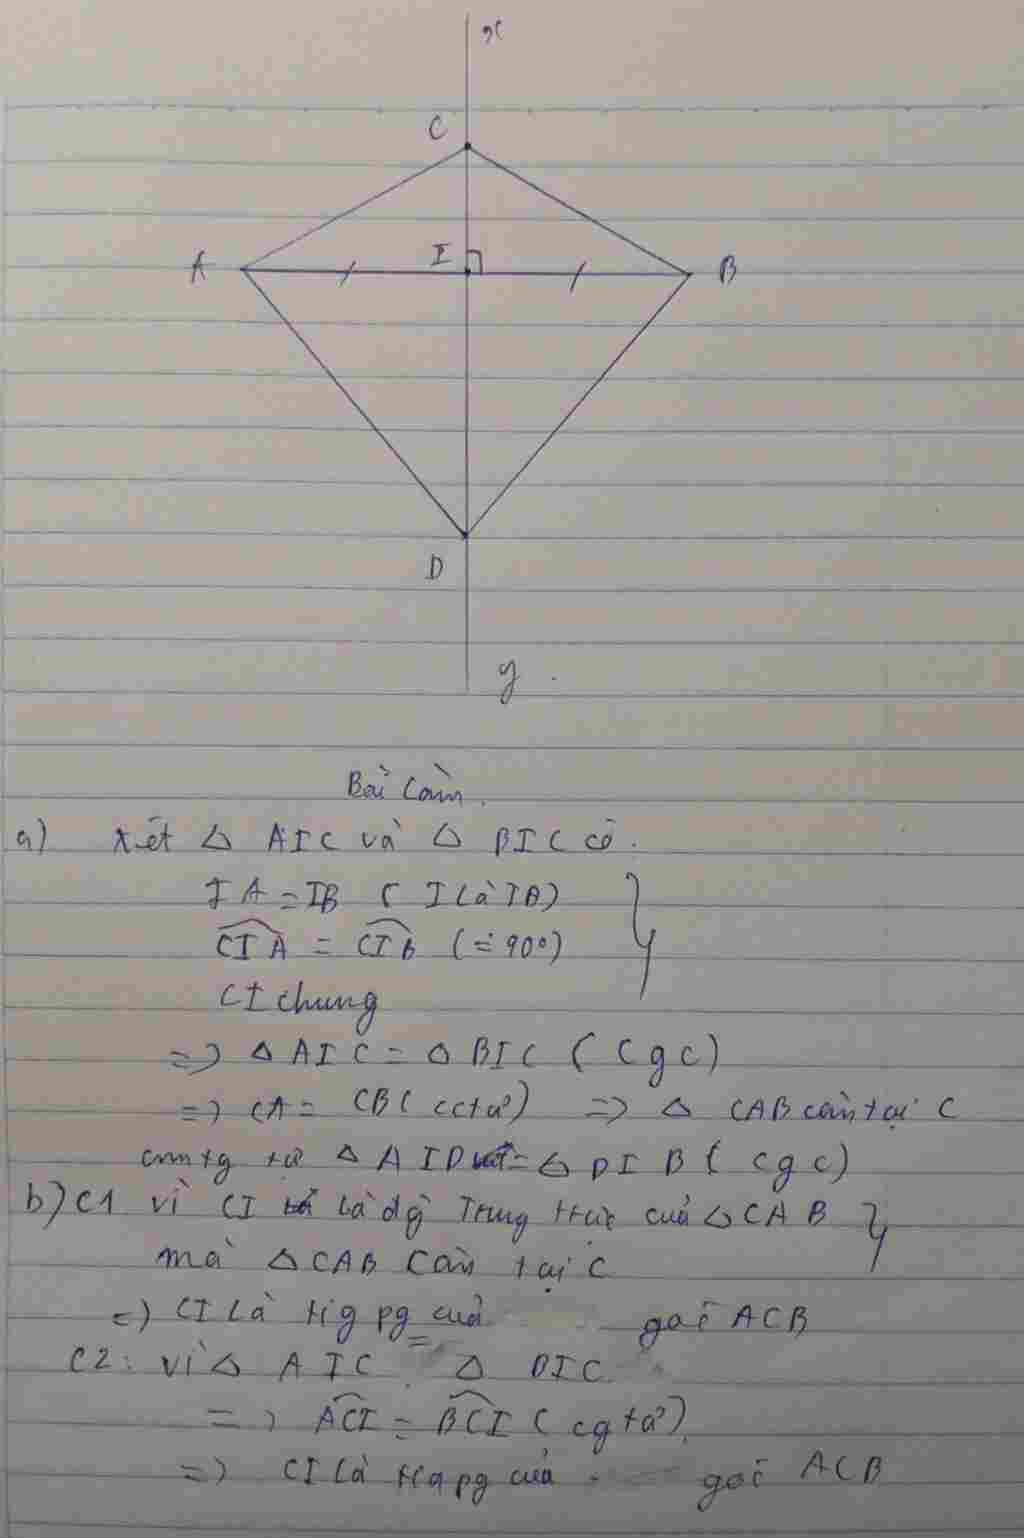 x
C
A
I
B
D
y
Bài làm.
a) Xét △ AIC và △ BIC có.
IA = IB ( I là TĐ)
CIA = CIB (= 90°)
CI chung
=> △ AIC = △ BIC ( cgc)
=> CA = CB ( cctư) => △ CAB cân tại C
cmtg tự △ AID = △ DIB ( cgc)
b) C1 Vì CI là đg Trung trực của △ CAB
mà △ CAB Cân tại C
=> CI là của góc ACB
C2: Vì △ AIC = △ BIC
=> ACI = BCI ( cgtư)
=> CI là của góc ACB